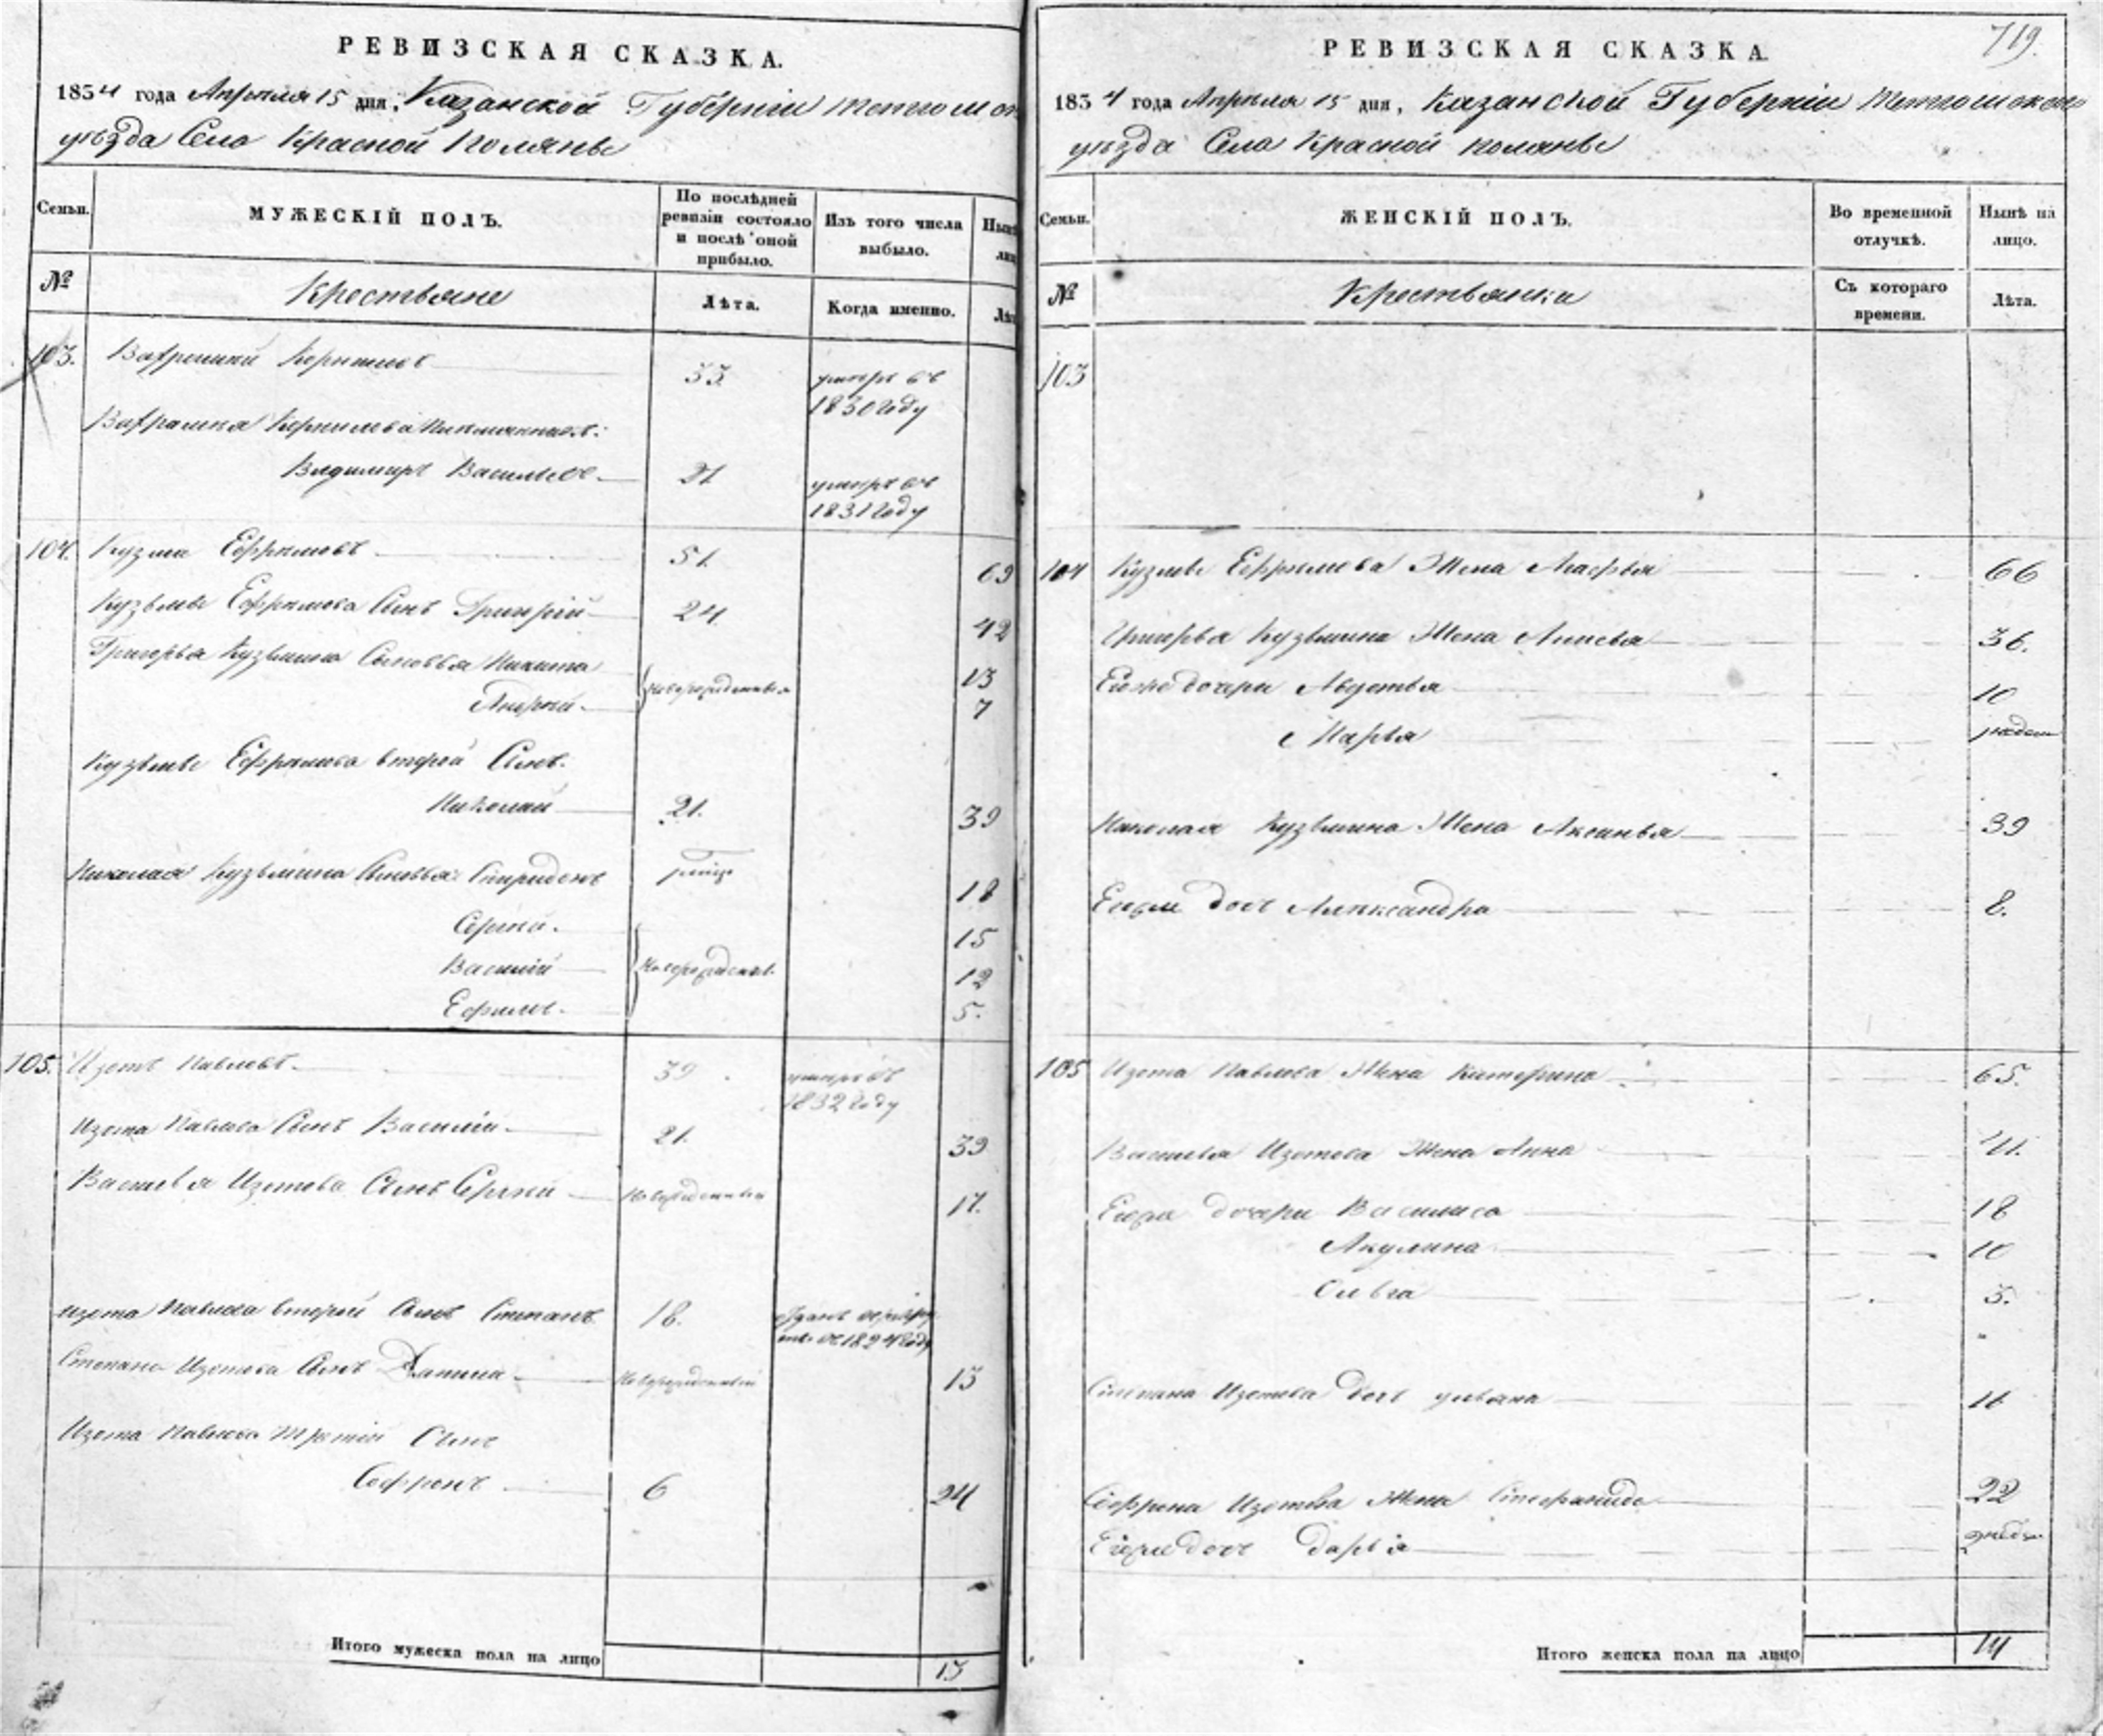 РЕВИЗСКАЯ СКАЗКА.
1834 года Апреля 15 дня, Казанской Губерніи
уѣзда Села Красной Поляны
Семьи.
МУЖЕСКІЙ ПОЛЪ.
По послѣдней ревизіи состояло и послѣ оной прибыло.
Изъ того числа выбыло.
№
Крестьяне
Лѣта.
Когда именно.
103.
Корнилов
33
умеръ въ
1830 году
Корнилова племянникъ:
Владимиръ Васильевъ
21
умеръ въ
1831 году
104.
Кузма Ефремовъ
51.
69
Кузьмы Ефремова Сынъ Григорій
24
42
Григорья Кузьмина Сыновья Никита
13
Андрей
Новорожденныя
7
Кузьмы Ефремова второй Сынъ
Николай
21.
39
Николая Кузьмина Сыновья Спиридонъ
18
Сергей
15
Василій
Новорожден.
12
Ефимъ
5.
105.
Изотъ Павловъ
39
умеръ въ
1832 году
Изота Павлова Сынъ Василій
21.
39
Василья Изотова Сынъ Сергей
Новорожденный
17.
Изота Павлова второй Сынъ Степанъ
18.
1824 году
Степана Изотова Сынъ Данила
Новорожденный
13
Изота Павлова третій Сынъ
Софронъ
6
24
Итого мужеска пола на лицо
13
719.
РЕВИЗСКАЯ СКАЗКА.
1834 года Апреля 15 дня, Казанской Губерніи
уѣзда Села Красной поляны
Семьи.
ЖЕНСКІЙ ПОЛЪ.
Во временной отлучкѣ.
Нынѣ на лицо.
№
Крестьянки
Съ котораго времени.
Лѣта.
103
104
Кузмы Ефремова Жена Марфья
66
Григорья Кузьмина Жена Анисья
36.
Ево же дочери Авдотья
10
Марья
Николая Кузьмина Жена Аксинья
39
дочь Александра
8.
105
Изота Павлова Жена Катерина
65.
Василья Изотова Жена Анна
41.
дочери Василиса
18
Акулина
10
Ольга
5.
Степана Изотова дочь Ульяна
11
Софрона Изотова Жена Степанида
22
дочь Дарья
Итого женска пола на лицо
14